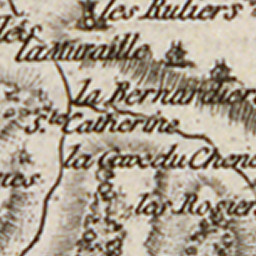 les Ruliers
la Muraille
la Bernardier
S.te Catherine
la Cave du Chene
les Rosier